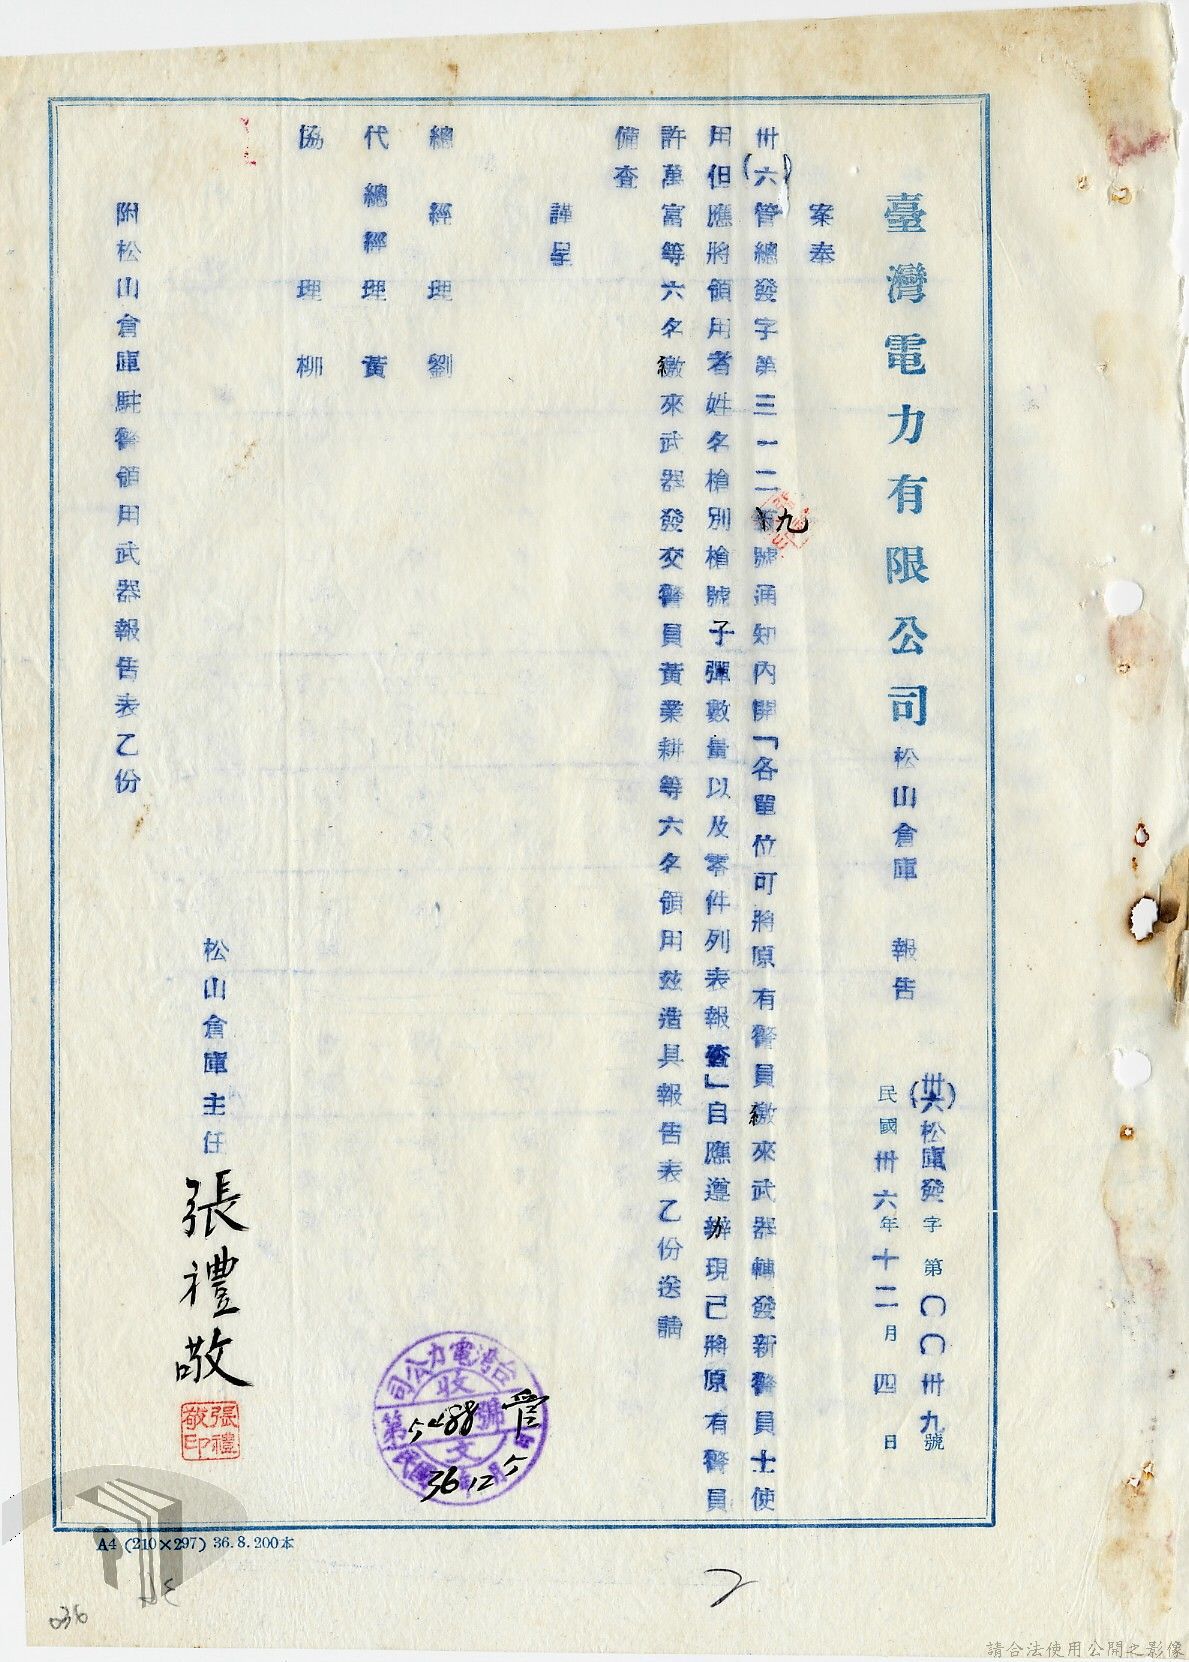 臺灣電力有限公司松山倉庫 報告
(卅六)松庫發字第〇〇卅九號
民國卅六年十二月四日
案奉
(卅六)管總發字第三一二九號通知內開「各單位可將原有警員繳來武器轉發新警員士使
用但應將領用者姓名槍別槍號子彈數量以及零件列表報查」自應遵辦現已將原有警員
許萬富等六名繳來武器發交警員黃業耕等六名領用茲造具報告表乙份送請
備查
謹呈
總經理 劉
代總經理 黃
協理 柳
松山倉庫主任 張禮敬
張禮敬印
附松山倉庫駐警領用武器報告表乙份
台灣電力公司
收文
管
第5488號
民國36年12月5日
A4 (210×297) 36.8.200本
036
請合法使用公開之影像